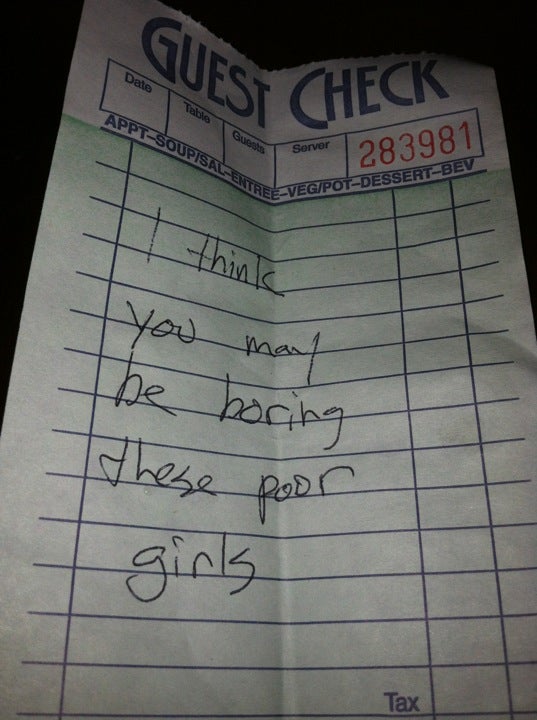 GUEST CHECK
Date Table Guests Server 283981
APPT-SOUP/SAL-ENTREE-VEG/POT-DESSERT-BEV
I think
you may
be boring
these poor
girls
Tax